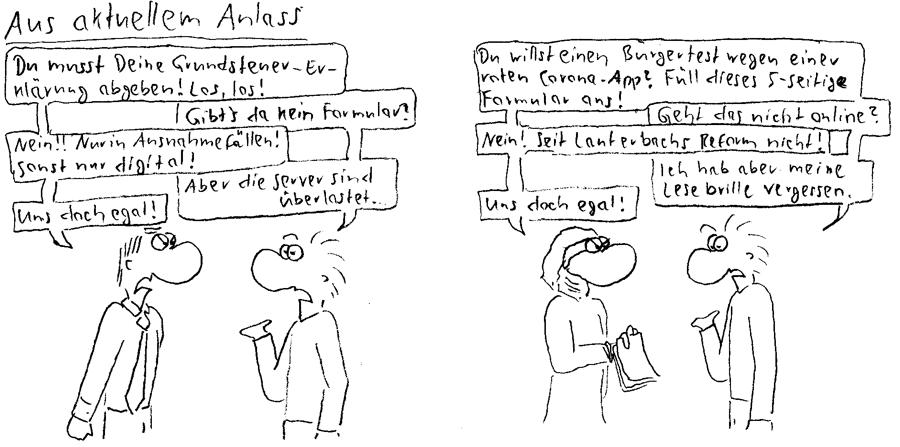 Aus aktuellem Anlass
Du musst Deine Grundsteuer-Er-
klärung abgeben! Los, los!
Gibt's da kein Formular?
Nein!! Nur in Ausnahmefällen!
Sonst nur digital!
Aber die Server sind
überlastet...
Uns doch egal!
Du willst einen Bürgertest wegen einer
roten Corona-App? Füll dieses 5-seitige
Formular aus!
Geht das nicht online?
Nein! Seit Lauterbachs Reform nicht!
Ich hab aber meine
Lesebrille vergessen.
Uns doch egal!